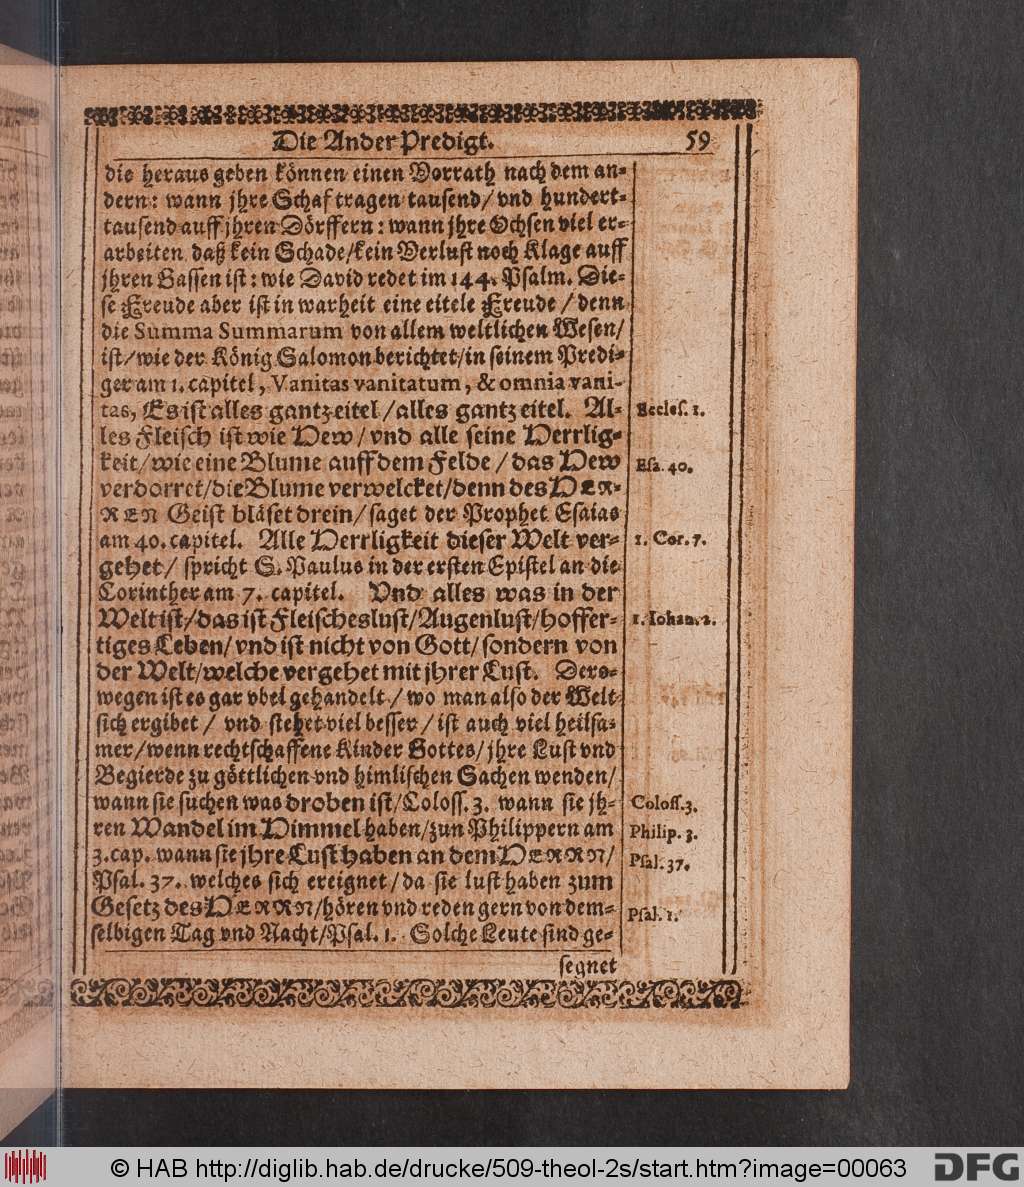 Die Ander Predigt. 59
die heraus geben können einen Vorrath nach dem an-
dern: wann jhre Schaf tragen tausend/ vnd hundert-
tausend auff jhren Dörffern: wann jhre Ochsen viel er-
arbeiten daß kein Schade/ kein Verlust noch Klage auff
jhren Gassen ist: wie David redet im 144. Psalm. Die-
se Freude aber ist in warheit eine eitele Freude / denn
die Summa Summarum von allem weltlichen Wesen/
ist/ wie der König Salomon berichtet/ in seinem Predi-
ger am 1. capitel, Vanitas vanitatum, & omnia vani-
tas, Es ist alles gantz eitel / alles gantz eitel. Al- Eccles. 1.
les Fleisch ist wie Hew/ vnd alle seine Herrlig-
keit/ wie eine Blume auff dem Felde / das Hew Esa. 40.
verdorret/ die Blume verwelcket/ denn des HER-
REN Geist bläset drein/ saget der Prophet Esaias
am 40. capitel. Alle Herrligkeit dieser Welt ver- 1. Cor. 7.
gehet/ spricht S. Paulus in der ersten Epistel an die
Corinther am 7. capitel. Vnd alles was in der
Welt ist/ das ist Fleischeslust/ Augenlust/ hoffer- 1. Iohan. 2.
tiges Leben/ vnd ist nicht von Gott/ sondern von
der Welt/ welche vergehet mit jhrer Lust. Ders-
wegen ist es gar vbel gehandelt / wo man also der Welt
sich ergibet / vnd stehet viel besser / ist auch viel heilsa-
mer/ wenn rechtschaffene Kinder Gottes/ jhre Lust vnd
Begierde zu göttlichen vnd himlischen Sachen wenden/
wann sie suchen was droben ist/ Coloss. 3. wann sie jh- Coloss. 3.
ren Wandel im Himmel haben/ zun Philippern am Philip. 3.
3. cap. wann sie jhre Lust haben an dem HERRN/ Psal. 37.
Psal. 37. welches sich ereignet/ da sie lust haben zum
Gesetz des HERRN/ hören vnd reden gern von dem- Psal. 1.
selbigen Tag vnd Nacht/ Psal. 1. Solche Leute sind ge-
segnet
© HAB http://diglib.hab.de/drucke/509-theol-2s/start.htm?image=00063 DFG